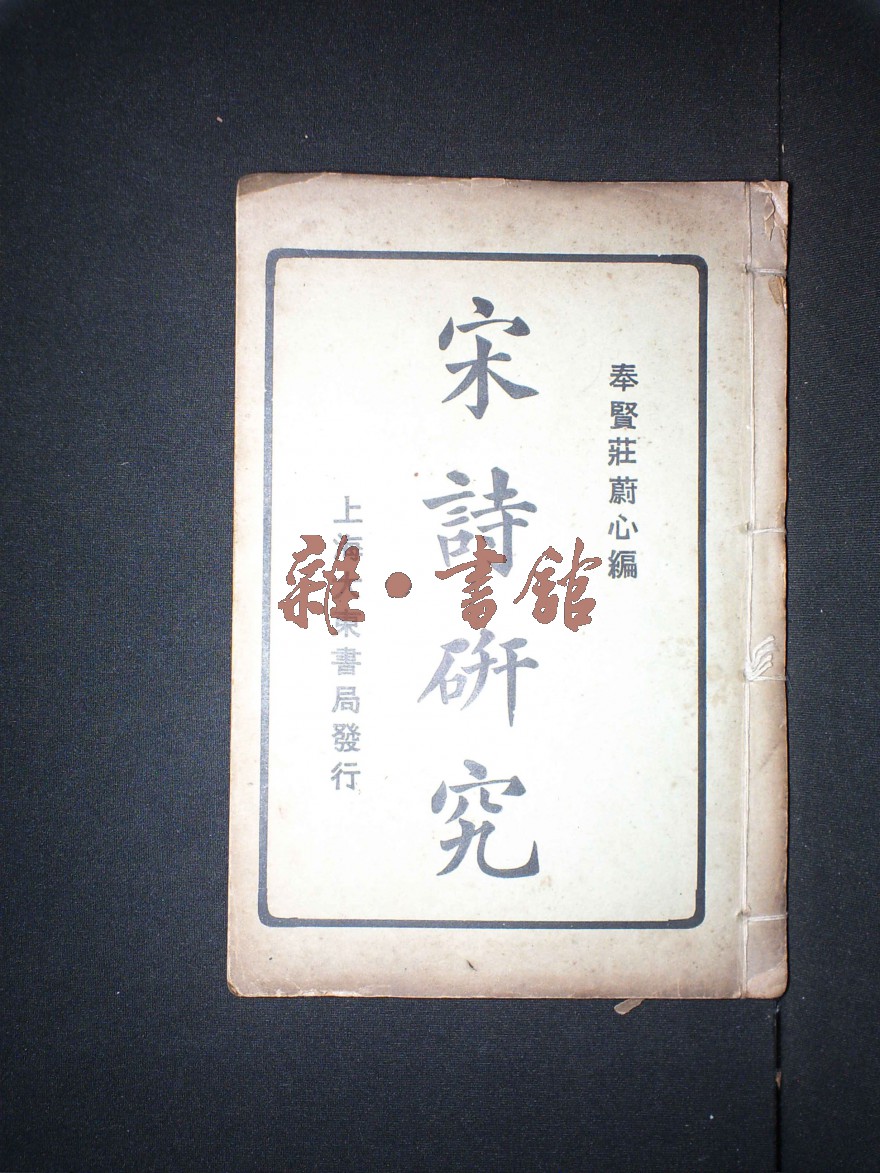 奉賢莊蔚心編
宋詩研究
上海大東書局發行
雜·書館